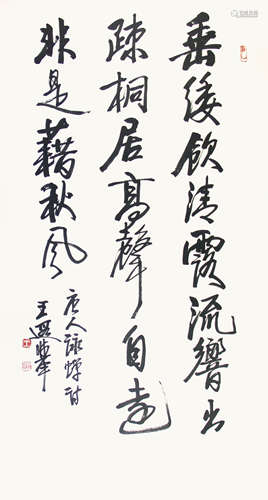 垂緌飲清露流響出
疎桐居高聲自遠
非是藉秋風
唐人詠蟬詩